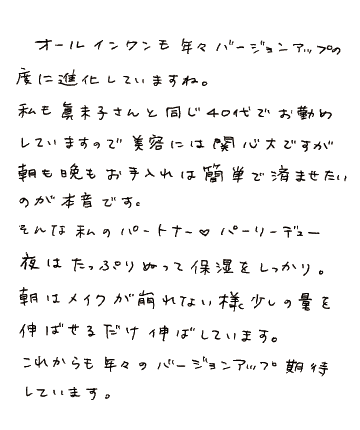 オールインワンも年々バージョンアップの
度に進化していますね。
私も眞未子さんと同じ40代でお勤め
していますので美容には関心大ですが
朝も晩もお手入れは簡単で済ませたい
のが本音です。
そんな私のパートナー♡パーリーデュー
夜はたっぷりぬって保湿をしっかり。
朝はメイクが崩れない様少しの量を
伸ばせるだけ伸ばしています。
これからも年々のバージョンアップ期待
しています。